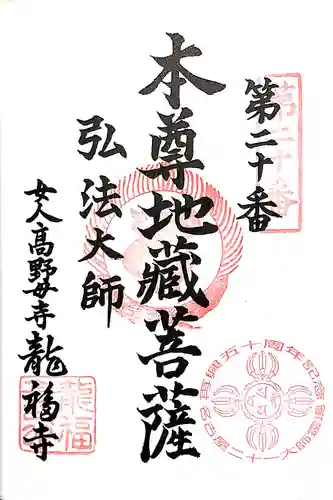 第二十番
第二十番
本尊地藏菩薩
弘法大師
女人高野母寺龍福寺
龍福
再興五十周年記念
名古屋二十一大師